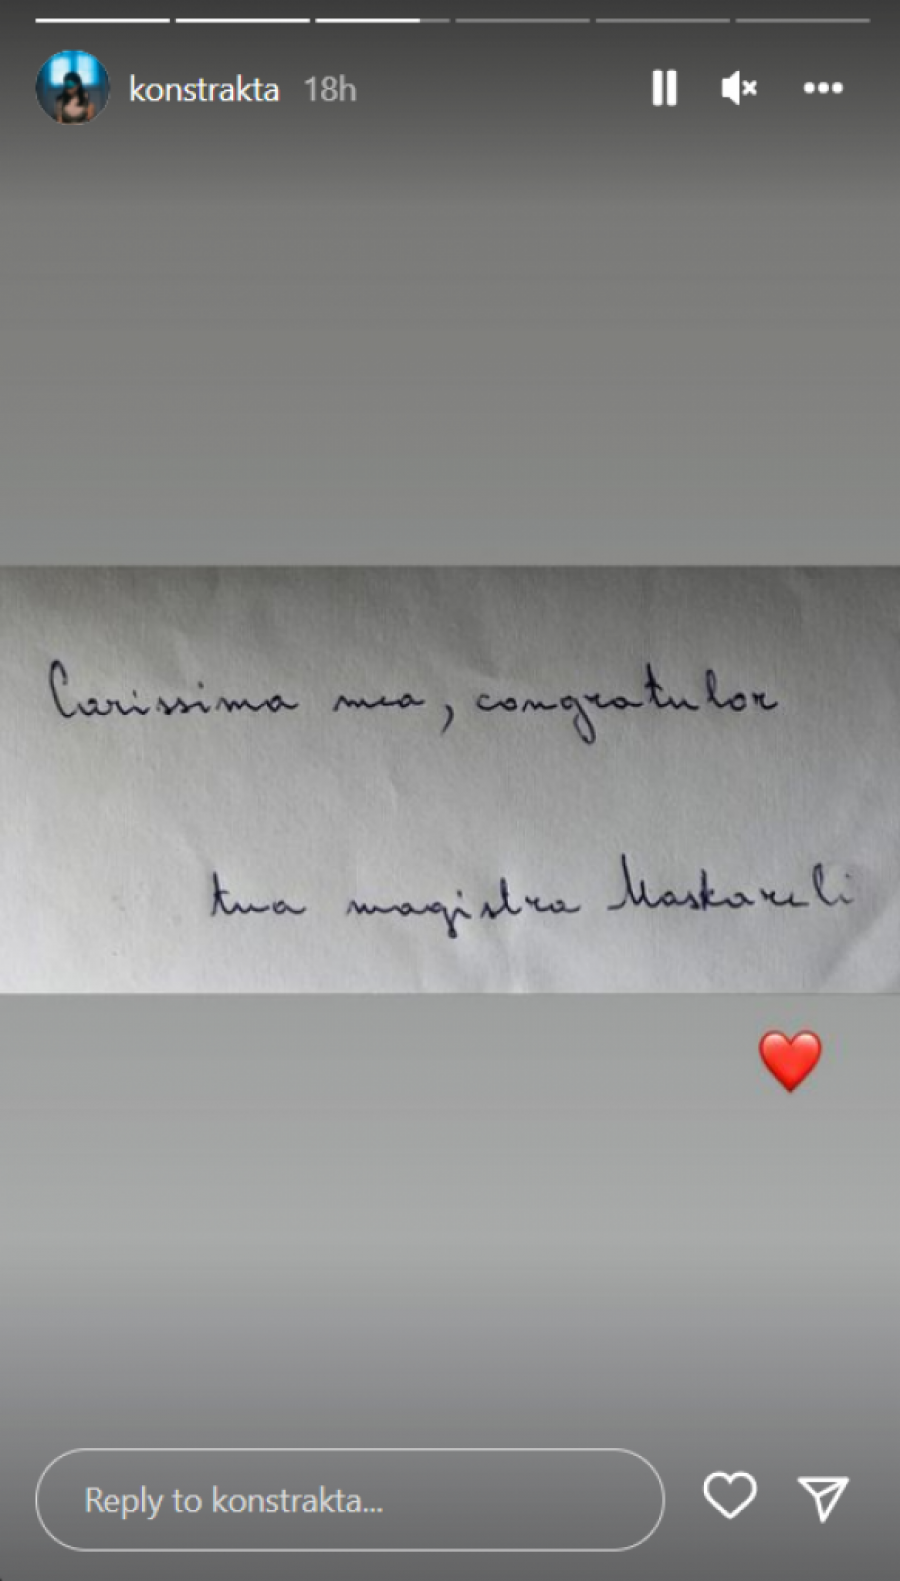 konstrakta 18h
Carissima mea, congratulor
tua magistra Maskareli
Reply to konstrakta...